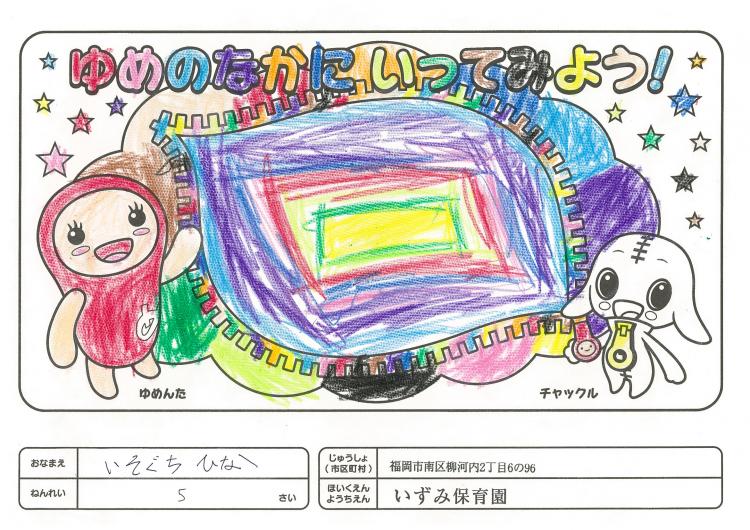 ゆめのなかにいってみよう!
ゆめんた
チャックル
おなまえ
いそぐち ひな
ねんれい
5 さい
じゅうしょ
(市区町村)
福岡市南区柳河内2丁目6の96
ほいくえん
ようちえん
いずみ保育園